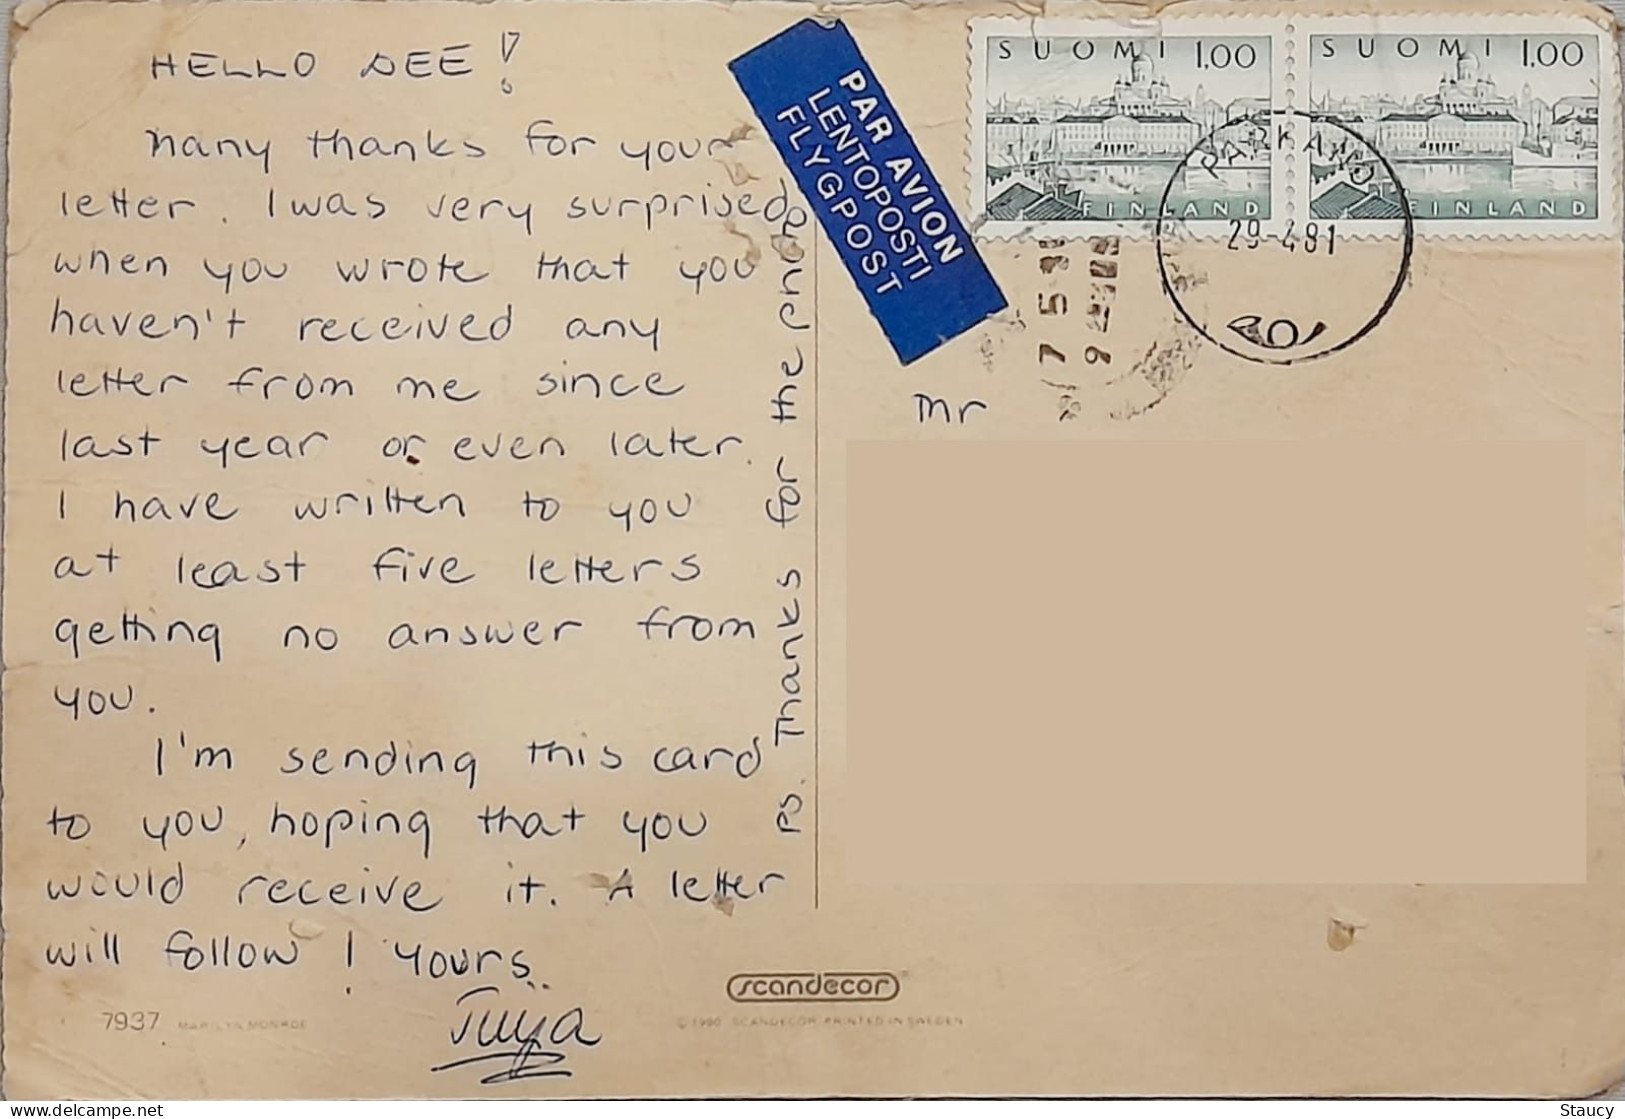 HELLO DEE!
Many thanks for your
letter. I was very surprised
when you wrote that you
haven't received any
letter from me since
last year or even later.
I have written to you
at least five letters
getting no answer from
you.
I'm sending this card
to you, hoping that you
would receive it. A letter
will follow! Yours
Tuija
Ps. Thanks for the photo
PAR AVION
LENTOPOSTI
FLYGPOST
SUOMI 1,00
FINLAND
SUOMI 1,00
FINLAND
PARKANO
29-4 81
7 5
9
Mr
scandecor
7937 MARILYN MONROE
© 1980 SCANDECOR PRINTED IN SWEDEN
www.delcampe.net
Staucy